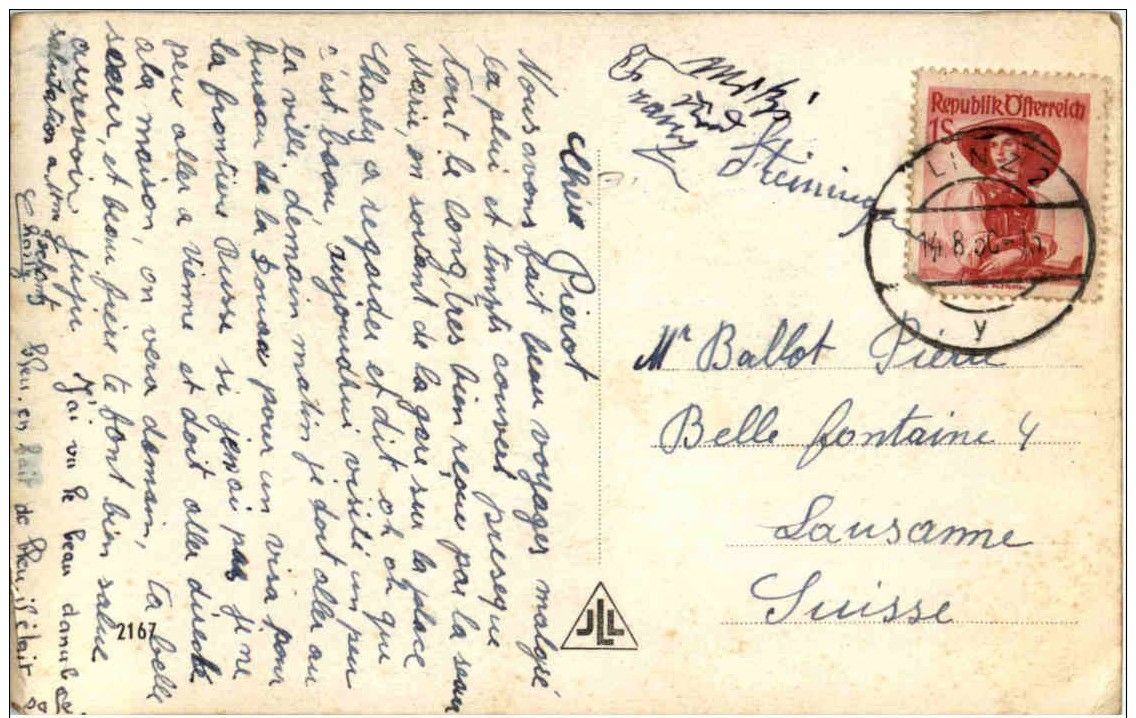 Cher Pierot
Nous avons fait beau voyages malgré
la plui et temps couvert presque
tout le long, tres bien reçus par la sœur
Marie, en sortant de la gare sur la place
Charly a regarder et dit oh ch que
c'est beau, aujourdhui visité un peu
la ville, demain matin je doit aller au
bureau de la Douane pour un visa pour
la frontiere Russe si jenai pas je ne
peu aller a Vienne et doit aller direct
a la maison, on vera demain, ta belle
sœur, et beau frère te font bien salue
aurevoir juju J'ai vu le beau danube
salutation a ton
Charly Bleu. en fait de Bleu il était
Miki
und
Franz
Republik Österreich
1S
LINZ 2
14.8.50-15
y
Mr Ballot Piérre
Belle fontaine 4
Lausanne
Suisse
JLL
2167